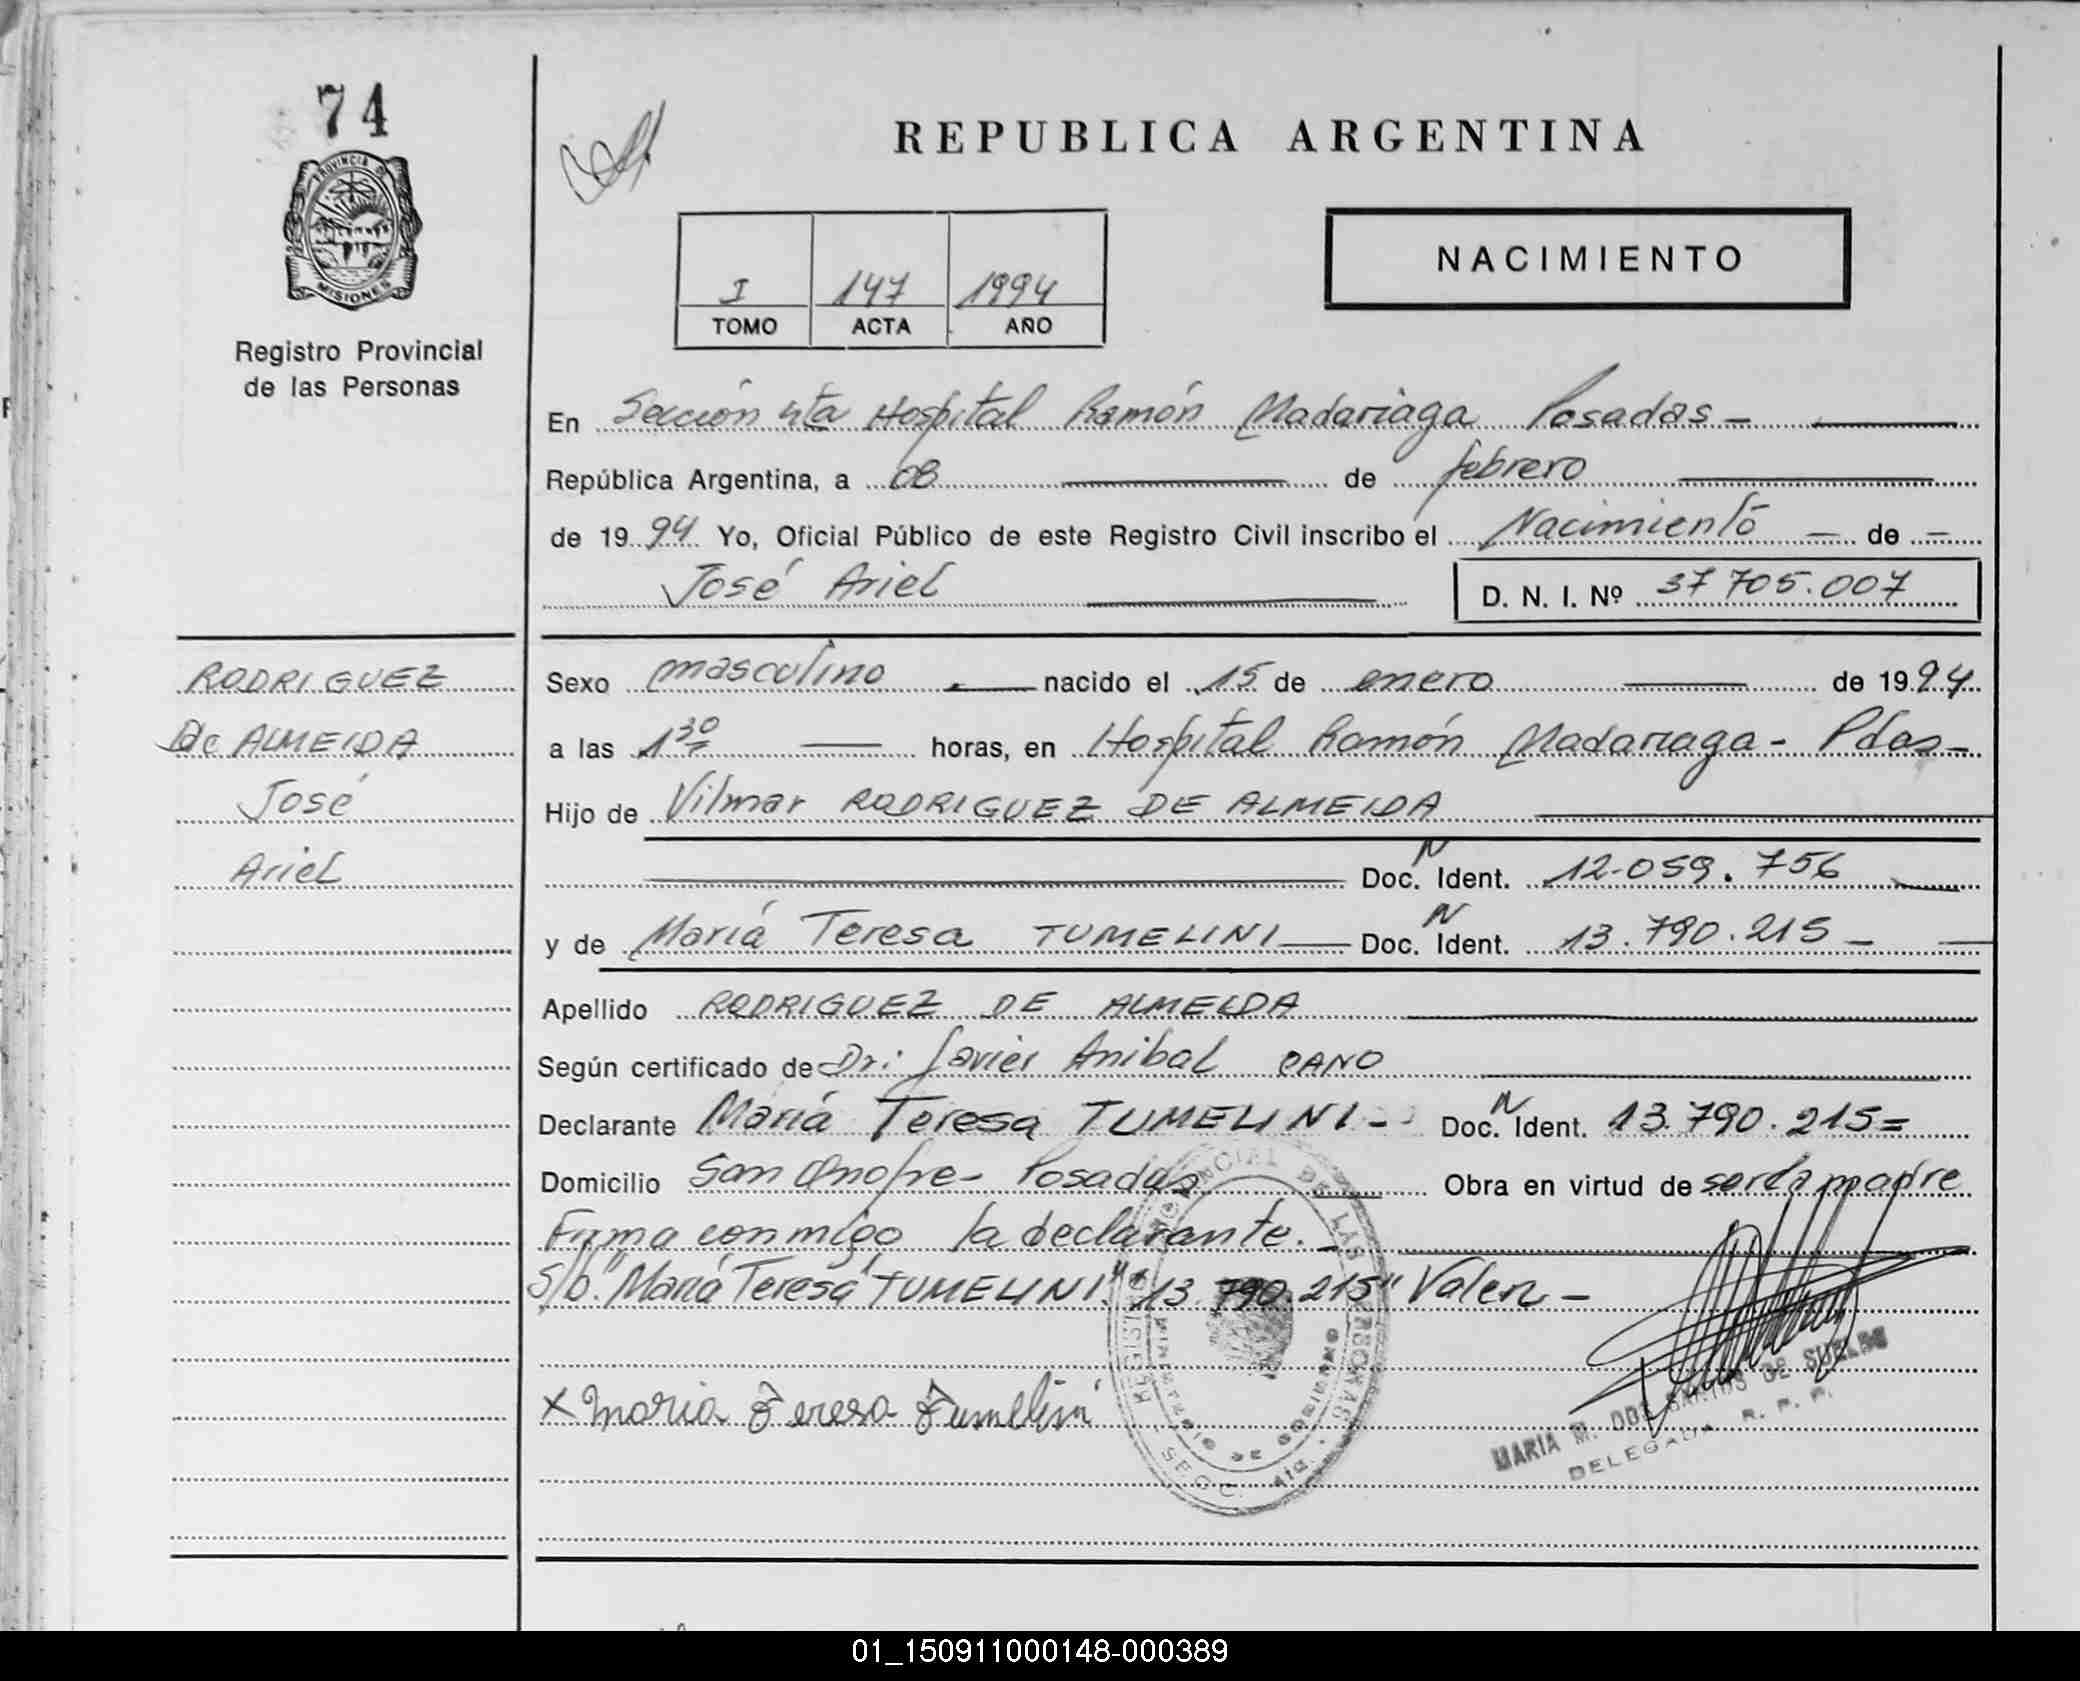 74
PROVINCIA DE
MISIONES
Registro Provincial
de las Personas
REPUBLICA ARGENTINA
NACIMIENTO
I 147 1994
TOMO ACTA AÑO
En Sección 4ta Hospital Ramón Madariaga Posadas -
República Argentina, a 08 de febrero
de 1994 Yo, Oficial Público de este Registro Civil inscribo el Nacimiento de
José Ariel D. N. I. Nº 37 705.007
RODRIGUEZ
de ALMEIDA
José
Ariel
Sexo masculino nacido el 15 de enero de 1994
a las 1 30 horas, en Hospital Ramón Madariaga - Pdas -
Hijo de Vilmar RODRIGUEZ DE ALMEIDA
Doc. N Ident. 12.059.756
y de María Teresa TUMELINI Doc. N Ident. 13.790.215 -
Apellido RODRIGUEZ DE ALMEIDA
Según certificado de Dr: Javier Anibal CANO
Declarante María Teresa TUMELINI - Doc. N Ident. 13.790.215 =
Domicilio San Onofre - Posadas Obra en virtud de ser la madre
Firma conmigo la declarante. -
S/b. "María Teresa" TUMELINI" "13.790.215" Valen -
x Maria Teresa Tumelini
MARIA M. DOS SANTOS DE
DELEGADA R. P. P.
01_150911000148-000389